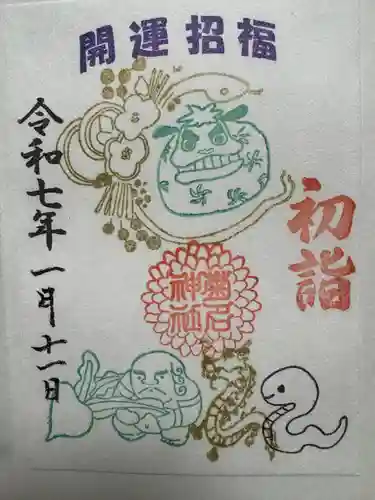 開運招福
初詣
令和七年一月十一日
菊名神社